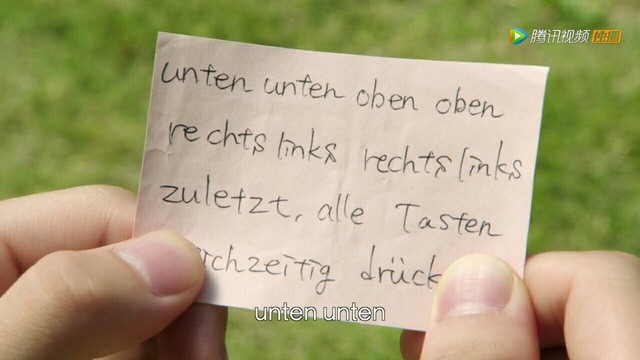 腾讯视频 独播
unten unten oben oben
rechts links rechts links
zuletzt, alle Tasten
unten unten